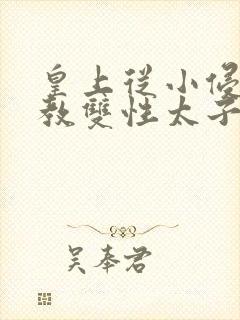 皇上從小侵
教雙性太子
吴奉君